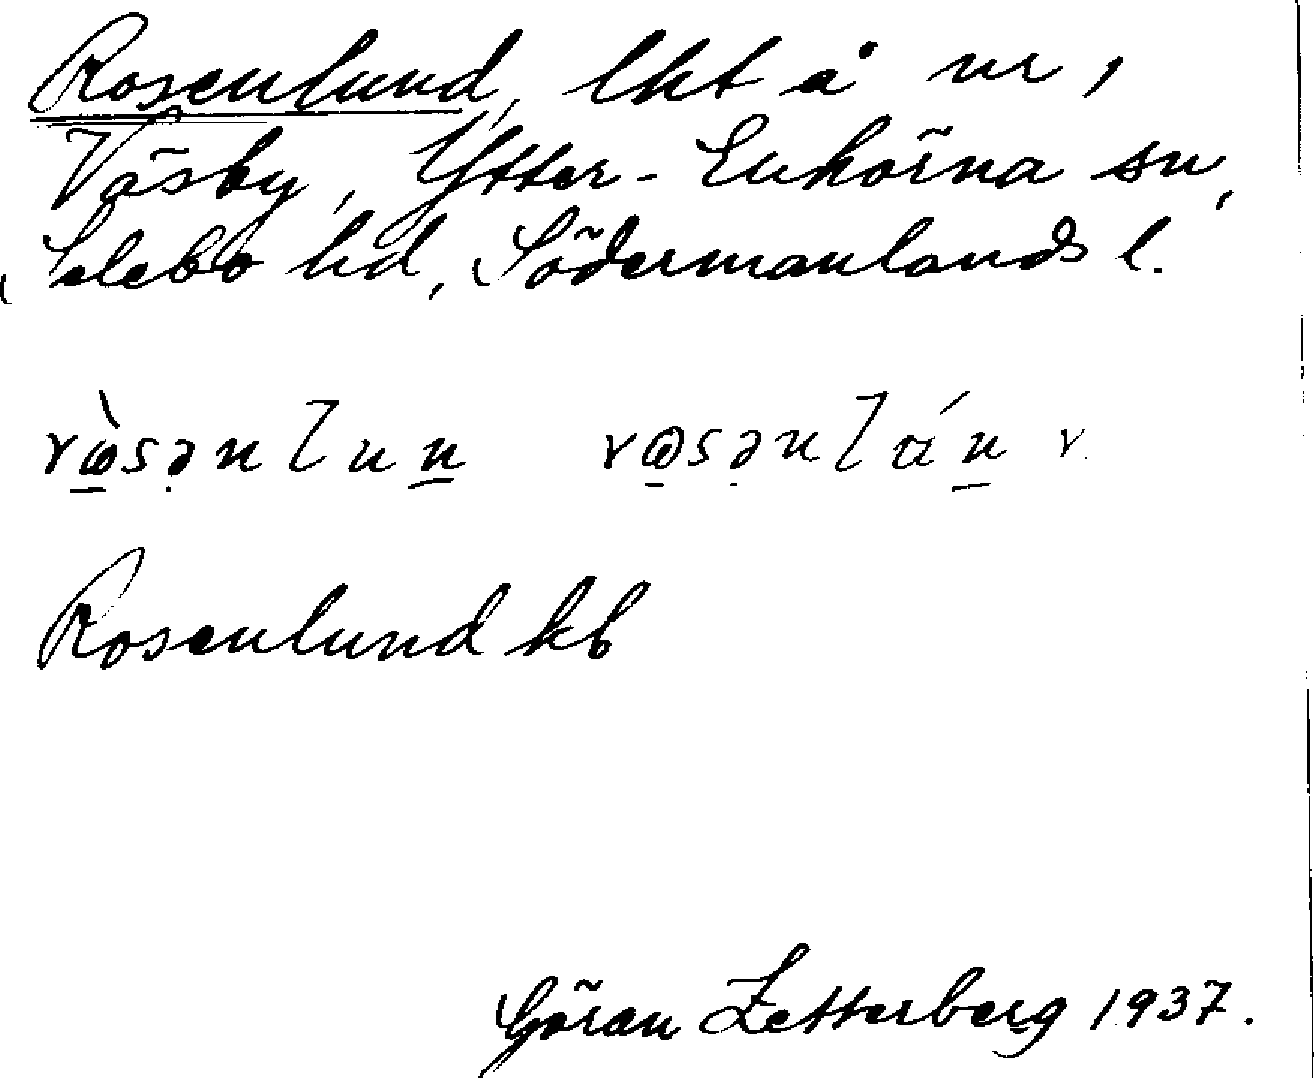 Rosenlund, lht å nr,
Väsby, Ytter-Enhörna sn,
Selebo hd, Södermanlands l.
Rosenlund kb
Göran Zetterberg 1937.